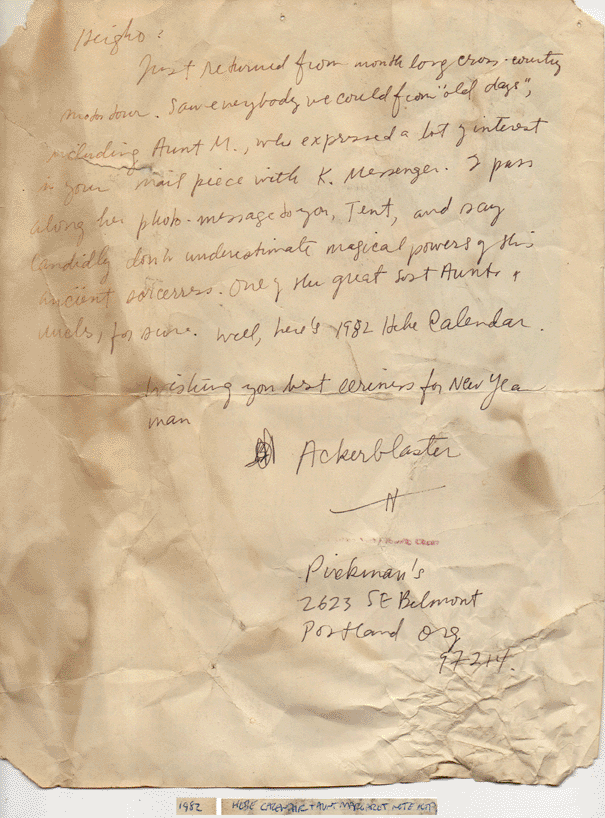 Heigho:
Just returned from month long cross-country
motor tour. Saw everybody we could from "old days",
including Aunt M., who expressed a lot of interest
in your mail piece with K. Messenger. I pass
along her photo-message to you, Tent, and say
candidly don't underestimate magical powers of this
ancient sorceress. One of the great lost Aunts +
uncles, for sure. Well, here's 1982 Hebe Calendar.
Wishing you best eeriness for New Yea
man
Ackerblaster
Pirkman's
2623 SE Belmont
Portland Org
97214.
1982 HEBE CALENDAR + AUNT MARGARET NOTE